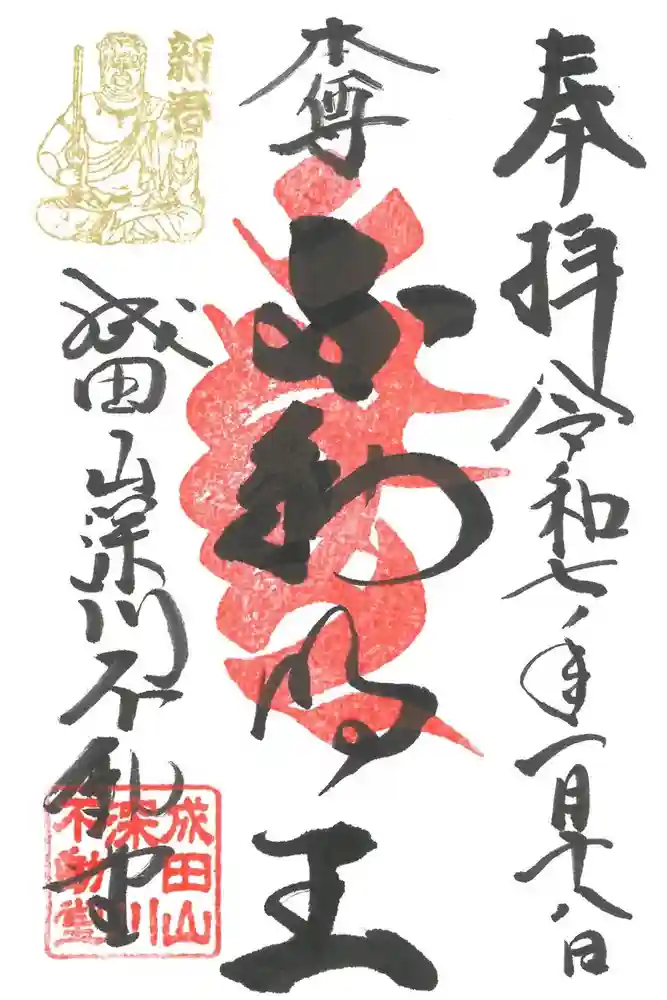 奉拝 令和七年一月十八日
本尊
不動明王
新春
成田山深川不動堂
成田山
深川
不動堂